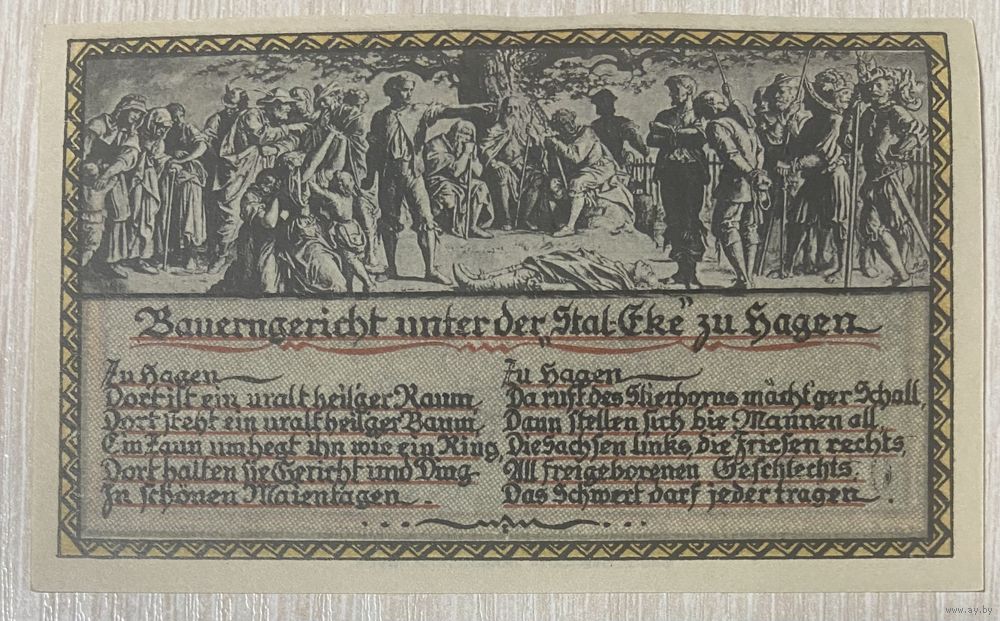 Bauerngericht unter der „Stal-Eke" zu Hagen
Zu Hagen
Dort ist ein uralt heil'ger Raum
Dort steht ein uralt heil'ger Baum
Ein Zaun umhegt ihn wie ein Ring,
Dort halten sie Gericht und Ding
In schönen Maientagen.
Zu Hagen
Da ruft des Stierhorns mächt'ger Schall,
Dann stellen sich die Mannen all,
Die Sachsen links, die Friesen rechts,
All freigeborenen Geschlechts.
Das Schwert darf jeder tragen.
www.ay.by